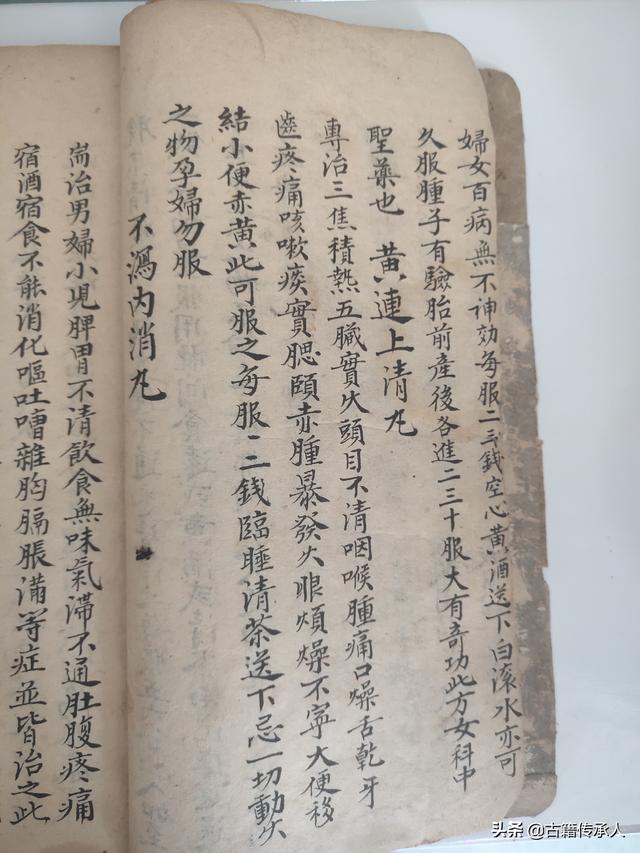 婦女百病無不神効每服二三錢空心黃酒送下白滾水亦可
久服腫子有驗胎前產後各進二三十服大有奇功此方女科中
聖藥也 黃連上清丸
專治三焦積熱五臟實火頭目不清咽喉腫痛口燥舌乾牙
齒疼痛咳嗽痰實腮頤赤腫暴發火眼煩燥不寧大便秘
結小便赤黃此可服之每服一二錢臨睡清茶送下忌一切動火
之物孕婦勿服
不瀉內消丸
耑治男婦小児脾胃不清飲食無味氣滯不通肚腹疼痛
宿酒宿食不能消化嘔吐嘈雜胸膈脹滿等症並皆治之此
头条 @古籍传承人